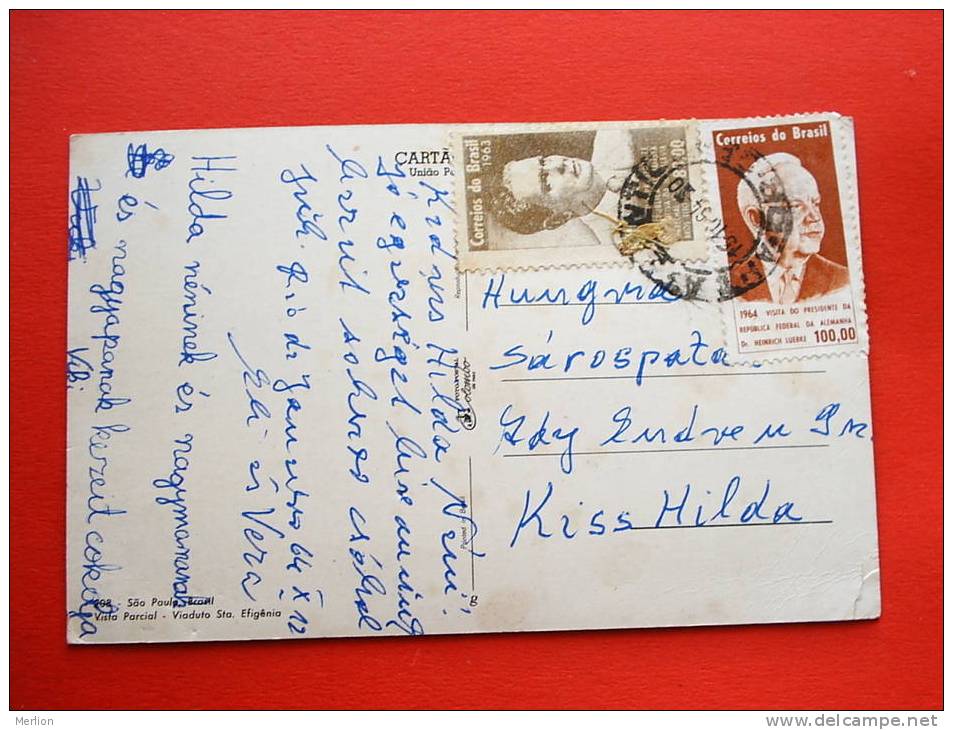 CARTÃ
União Po
Correios do Brasil
1963
8,00
Correios do Brasil
1964 VISITA DO PRESIDENTE DA
REPÚBLICA FEDERAL DA ALEMANHA
Dr. HEINRICH LUEBKE 100,00
Kedves Hilda Néni!
Jó egészséget kívánunk
sok csókkal
Rio di Janeiro 64 X 12
Eli és Vera
Hilda néninek és nagymamának
és nagyapának kezeit csókolja
Vili
Hungria
Sárospata
Ady Endre u
Kiss Hilda
FOTOPOSTAL
Colombo
Printed in B
São Paulo, Brasil
Vista Parcial - Viaduto Sta. Efigênia
Merlion
www.delcampe.net